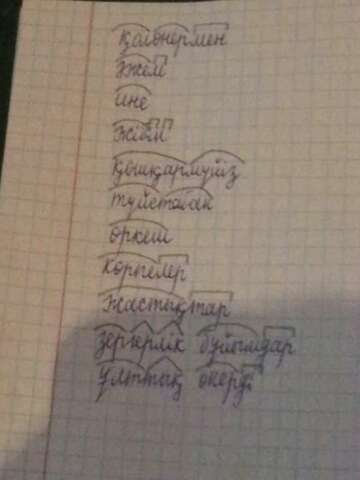 қолөнермен
әжем
ине
жібі
қошқармүйіз
түйетабан
өркеш
көрпелер
жастықтар
зергерлік бұйымдар
ұлттық өнерді